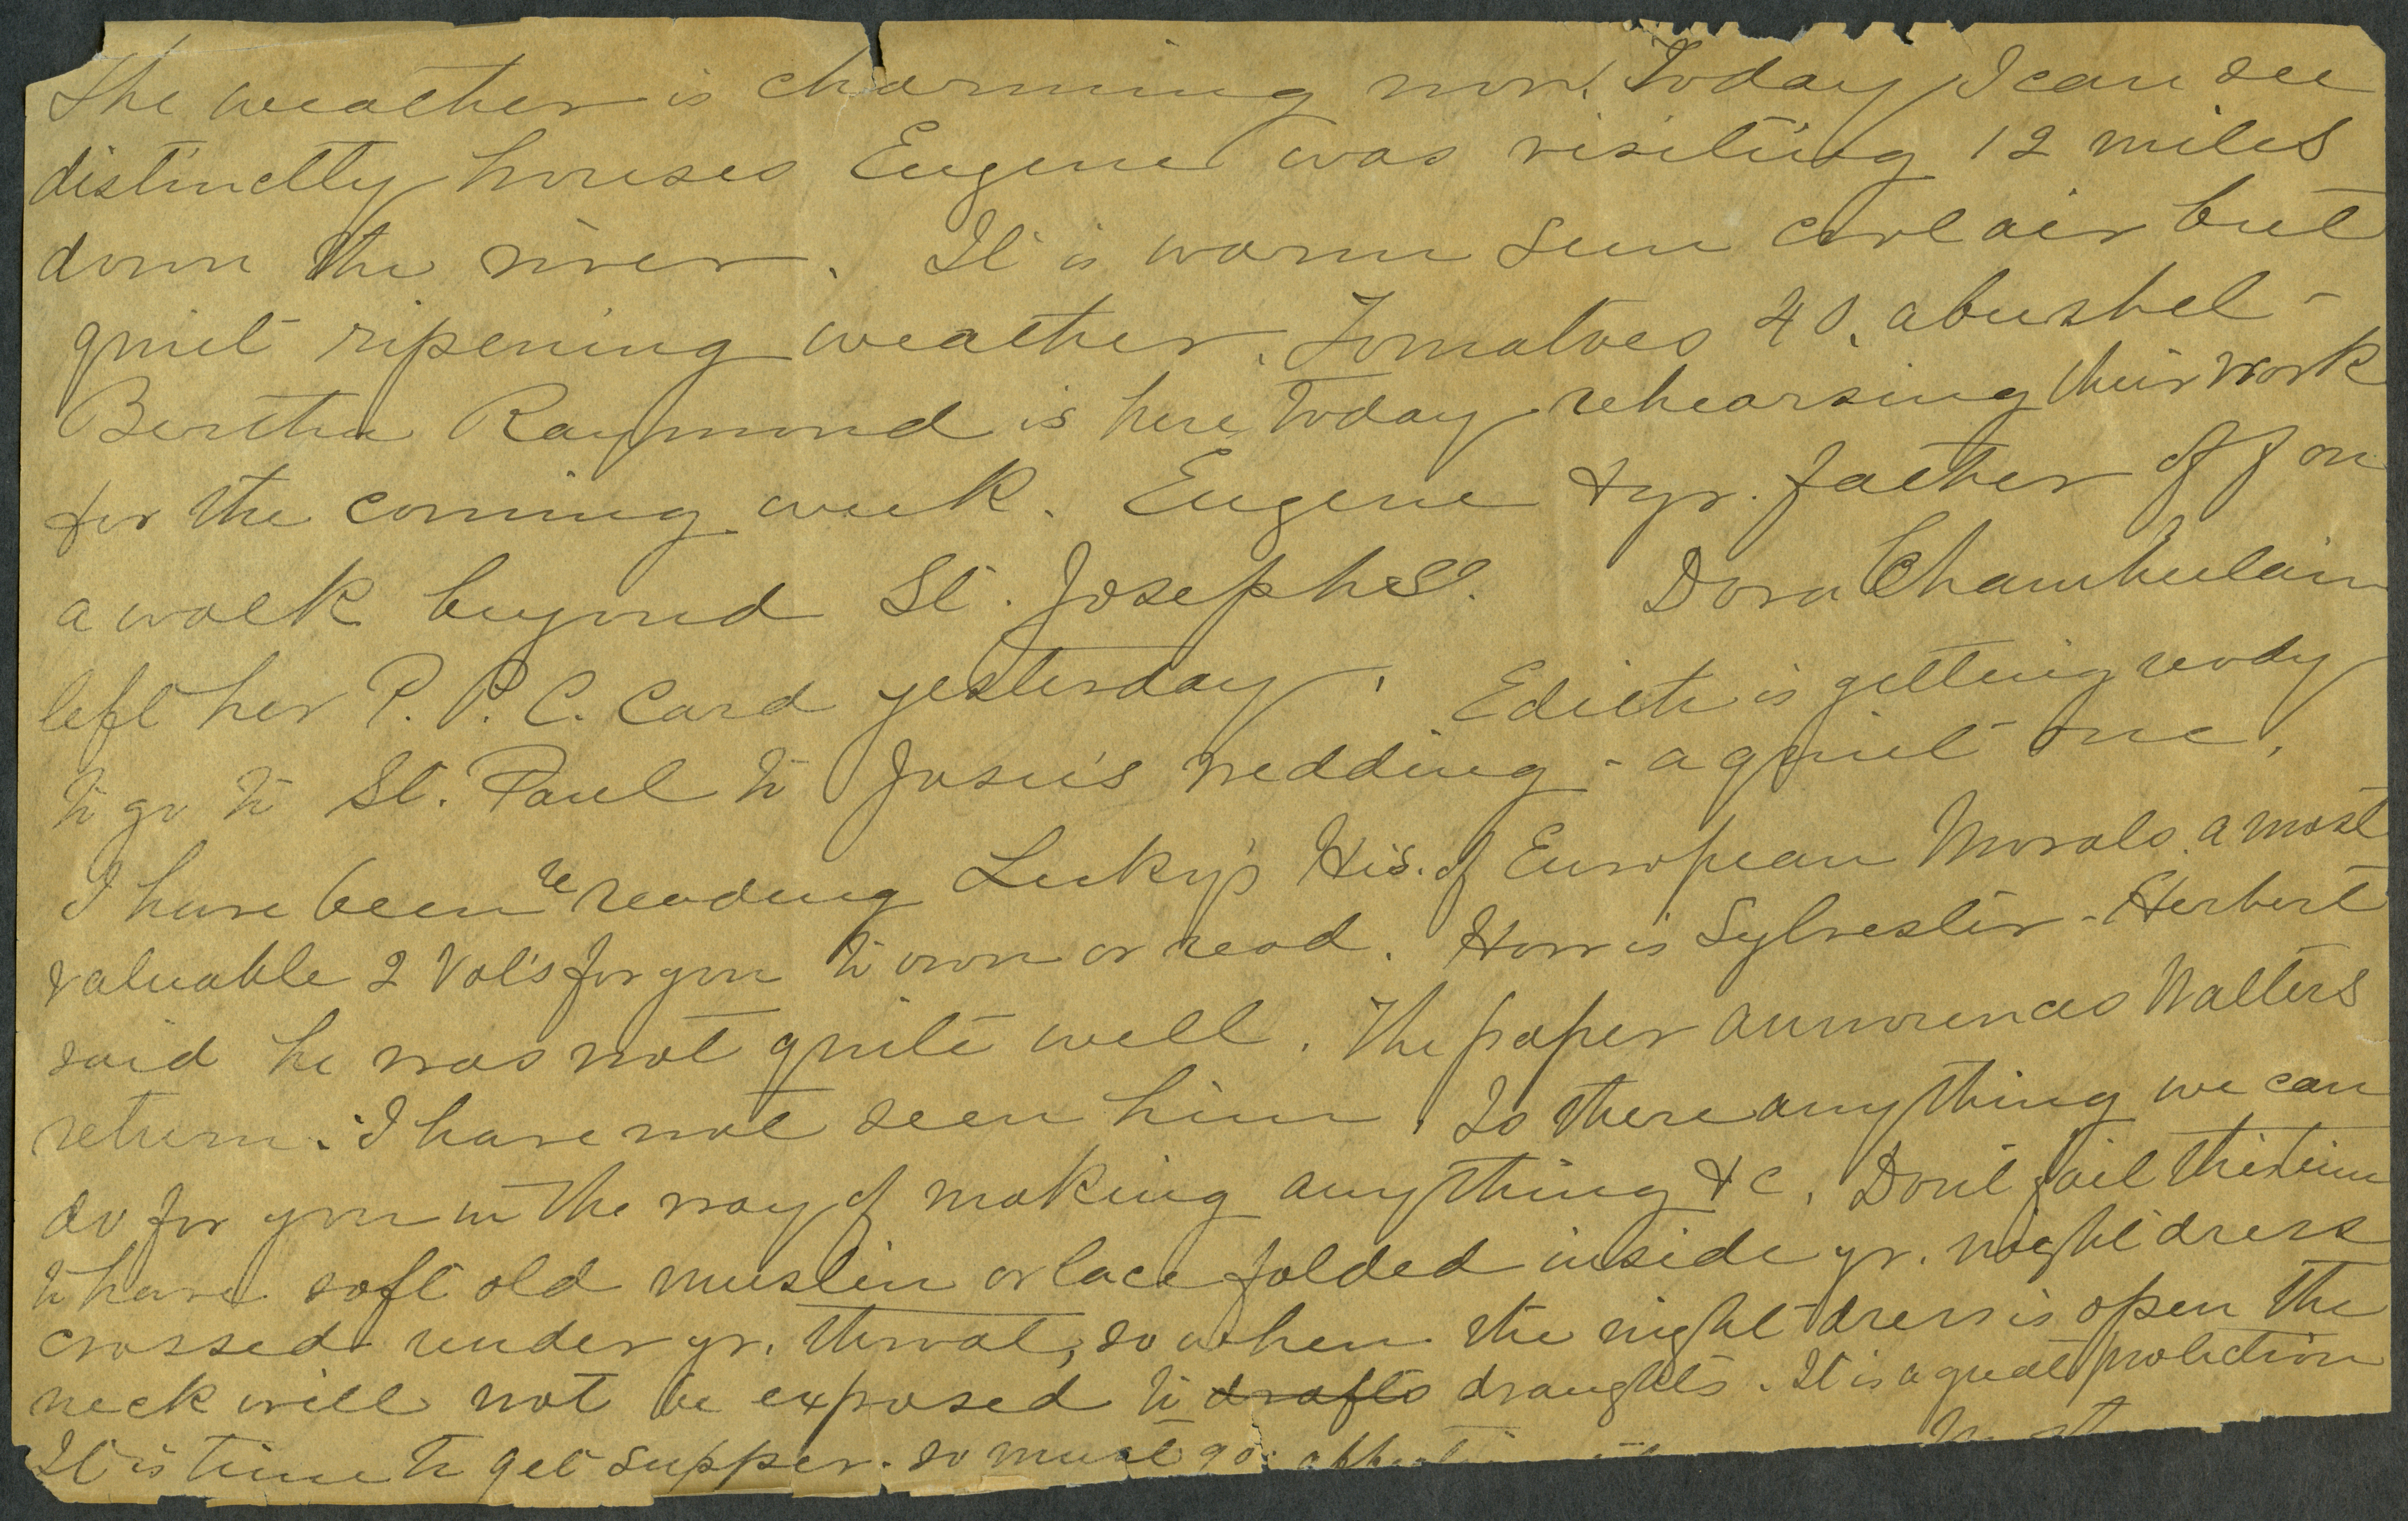 The weather is charming now. Today I can see
distinctly houses Eugene was visiting 12 miles
down the river. It is warm sun cool air but
quiet ripening weather. Tomatoes 40. a bushel -
Bertha Raymond is here today rehearsing their work
for the coming week. Eugene & yr. father off on
a walk beyond St. Josephs. Dora Chamberlain
left her P. P. C. Card yesterday. Edith is getting ready
to go to St. Paul to Josie's wedding - a quiet one.
I have been re reading Lecky's His. of European Morals. a most
valuable 2 Vol's for you to own or read. How is Sylvester - Herbert
said he was not quite well. The paper announces Walters
return. I have not seen him. Is there anything we can
do for you in the way of making anything &c. Don't fail this time
to have soft old muslin or lace folded inside yr. night dress
crossed under yr. throat, so when the night dress is open the
neck will not be exposed to drafts draughts. It is a great protection
It is time to get supper. so must go.